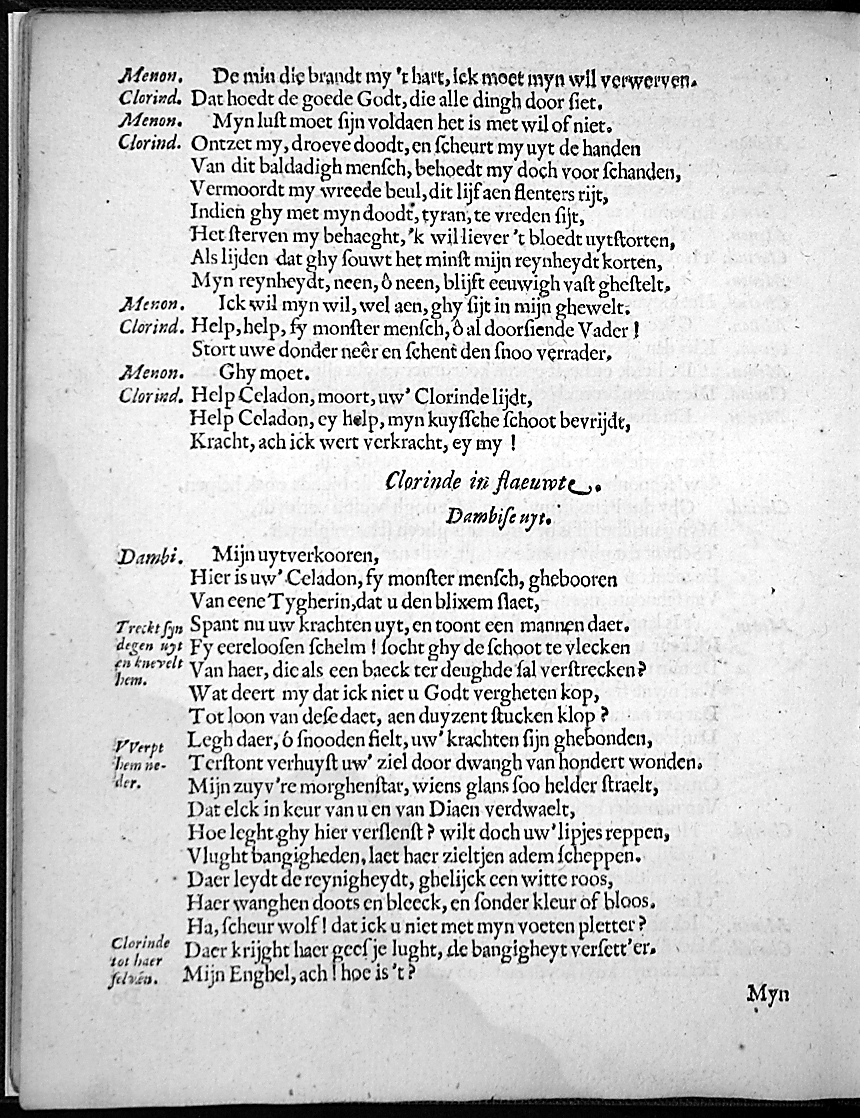 Menon. De min die brandt my 't hart, ick moet myn wil verwerven.
Clorind. Dat hoedt de goede Godt, die alle dingh door siet.
Menon. Myn lust moet sijn voldaen het is met wil of niet.
Clorind. Ontzet my, droeve doodt, en scheurt my uyt de handen
Van dit baldadigh mensch, behoedt my doch voor schanden,
Vermoordt my wreede beul, dit lijf aen flenters rijt,
Indien ghy met myn doodt, tyran, te vreden sijt,
Het sterven my behaeght, 'k wil liever 't bloedt uytstorten,
Als lijden dat ghy souwt het minst mijn reynheydt korten,
Myn reynheydt, neen, ô neen, blijft eeuwigh vast ghestelt,
Menon. Ick wil myn wil, wel aen, ghy sijt in mijn ghewelt.
Clorind. Help, help, fy monster mensch, ô al doorsiende Vader!
Stort uwe donder neêr en schent den snoo verrader.
Menon. Ghy moet.
Clorind. Help Celadon, moort, uw' Clorinde lijdt,
Help Celadon, ey help, myn kuyssche schoot bevrijdt,
Kracht, ach ick wert verkracht, ey my!
Clorinde in flaeuwte.
Dambise uyt.
Dambi. Mijn uytverkooren,
Hier is uw' Celadon, fy monster mensch, ghebooren
Van eene Tygherin, dat u den blixem slaet,
Treckt syn Spant nu uw krachten uyt, en toont een mannen daet.
degen uyt Fy eereloosen schelm! socht ghy de schoot te vlecken
en knevelt Van haer, die als een baeck ter deughde sal verstrecken?
hem. Wat deert my dat ick niet u Godt vergheten kop,
Tot loon van dese daet, aen duyzent stucken klop?
VVerpt Legh daer, ô snooden fielt, uw' krachten sijn ghebonden,
hem ne- Terstont verhuyst uw' ziel door dwangh van hondert wonden.
der. Mijn zuyv're morghenstar, wiens glans soo helder straelt,
Dat elck in keur van u en van Diaen verdwaelt,
Hoe leght ghy hier verslenst? wilt doch uw' lipjes reppen,
Vlught bangigheden, laet haer zieltjen adem scheppen.
Daer leydt de reynigheydt, ghelijck een witte roos,
Haer wanghen doots en bleeck, en sonder kleur of bloos.
Ha, scheur wolf! dat ick u niet met myn voeten pletter?
Clorinde Daer krijght haer geesje lught, de bangigheyt versett'er.
tot haer Mijn Enghel, ach! hoe is 't?
selven.
Myn